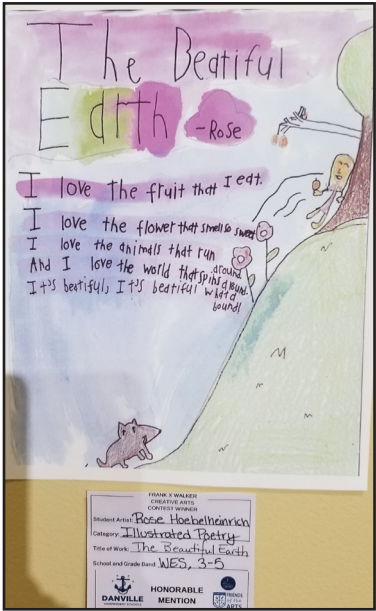 The Beatiful
Earth -Rose
I love the fruit that I eat.
I love the flower that smell so sweet
I love the animals that run
around.
And I love the world that spins around.
It's beatiful, It's beatiful what a
bound!
FRANK X WALKER
CREATIVE ARTS
CONTEST WINNER
Student Artist: Rose Haebelheinrich
Category: Illustrated Poetry
Title of Work: The Beautiful Earth
School and Grade Band: WES, 3-5
DANVILLE
HONORABLE
MENTION
FRIENDS
of the
ARTS